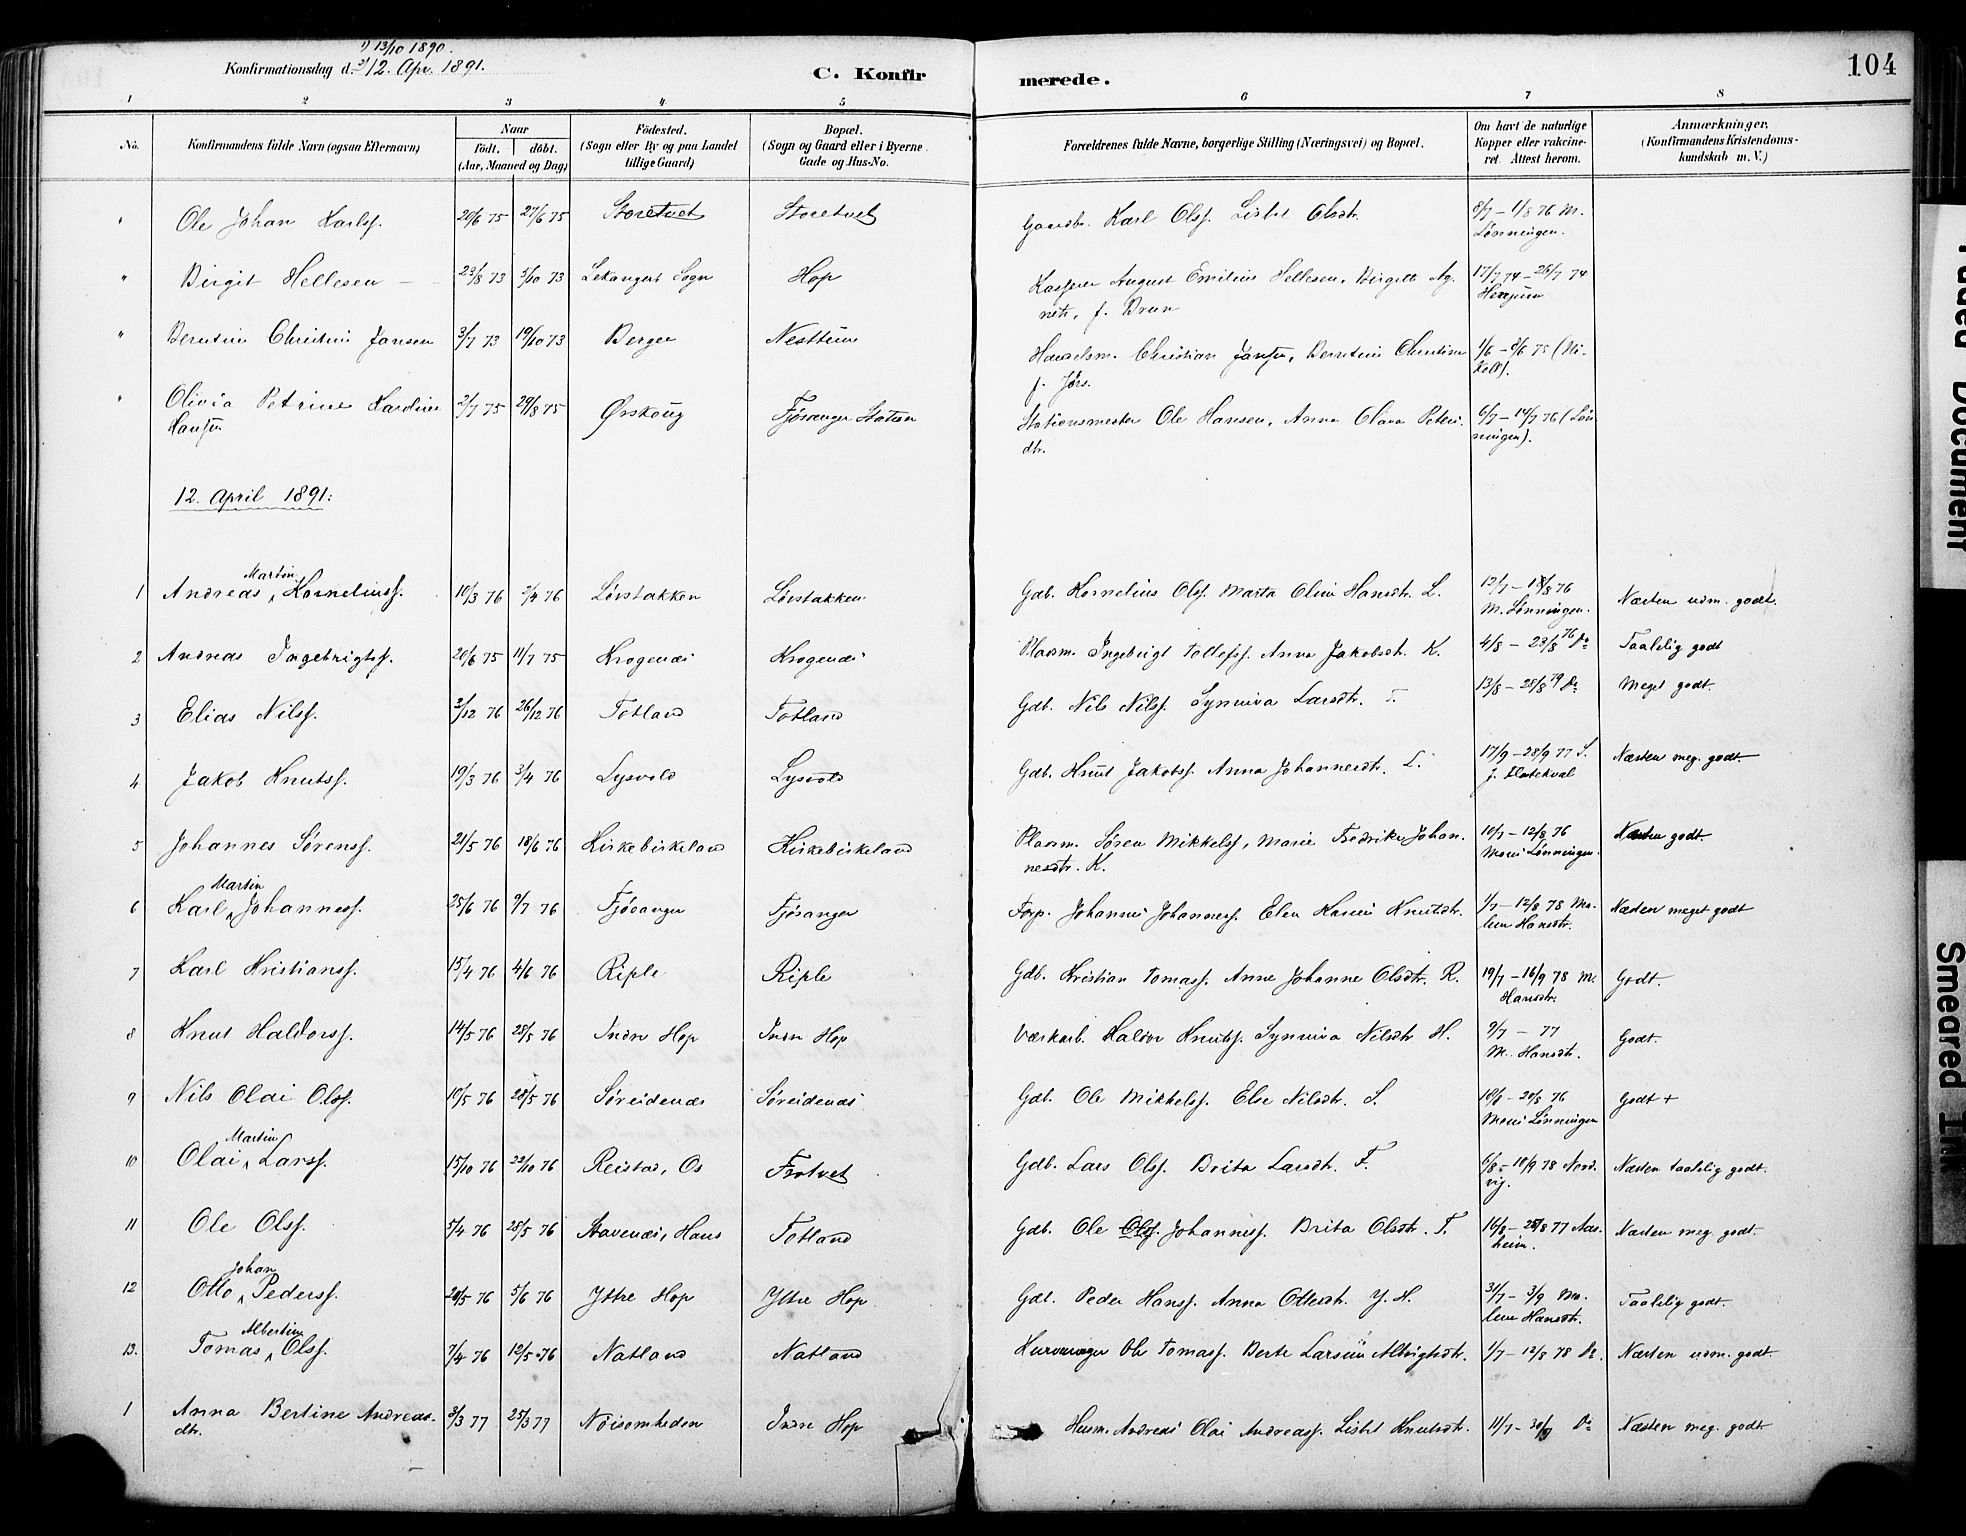 1) 13/10 1890.
Konfirmationsdag d. 2) 12. Apr. 1891.
C. Konfirmerede.
104
1 2 3 4 5 6 7 8
No.
Konfirmandens fulde Navn (ogsaa Efternavn)
Naar
födt. döbt.
(Aar, Maaned og Dag)
Födested.
(Sogn eller By og paa Landet
tillige Gaard)
Bopæl.
(Sogn og Gaard eller i Byerne
Gade og Hus-No.
Forældrenes fulde Navne, borgerlige Stilling (Næringsvei) og Bopæl.
Om havt de naturlige
Kopper eller vakcineret. Attest herom.
Anmærkninger.
(Konfirmandens Kristendomskundskab m. V.)
" Ole Johan Karlsf. 20/6 75 27/6 75 Storetvet Storetvet Gaardbr. Karl Olsf. Lisbet Olsdtr. 8/7 – 1/8 76 M.
Lönningen.
" Birgit Hellesen 23/8 73 5/10 73 Lekangers Sogn Hop Kasserer August Emilius Hellesen, Birgitte Ag- 17/7 74 – 26/7 74
nete, f. Brun
" Berntine Christine Jansen 3/7 73 19/10 73 Bergen Nesttun Handelsm. Christian Jansen, Berntine Christine 1/6 – 8/6 75
" Olivia Petrine Karoline 2/7 75 29/8 75 Ørskoug Fjösanger Station Stationsmester Ole Hansen, Anna Olava Peters- 6/7 – 14/7 76 (Lön-
Hansen dtr. ningen).
12. April 1891:
1 Andreas Martin Korneliusf. 10/3 76 2/4 76 Lövstakken Lövstakken Gdb. Kornelius Olsf. Marta Oline Hansdtr. L. 13/7 – 18/8 76
M. Lönningen. Næsten udm. godt.
2 Andreas Ingebrigtsf. 20/6 75 11/7 75 Krogenæs Krogenæs Pladsm. Ingebrigt Tollefsf. Anna Jakobsdtr. K. 4/8 – 23/8 76 Do Taalelig godt
3 Elias Nilsf. 2/12 76 26/12 76 Totland Totland Gdb. Nils Nilsf. Synniva Larsdtr. T. 13/8 – 28/8 79 Do Meget godt.
4 Jakob Knutsf. 19/3 76 3/4 76 Lysvold Lysvold Gdb. Knut Jakobsf. Anna Johannesdtr. L. 17/9 – 28/9 77 S.
Næsten meg. godt.
5 Johannes Sörensf. 21/5 76 18/6 76 Kirkebirkeland Kirkebirkeland Pladsm. Sören Mikkelsf, Marie Fredrikke Johan- 10/7 – 12/8 76 Næsten godt.
nesdtr. K. Mons Lönningen.
6 Karl Martin Johannesf. 25/6 76 9/7 76 Fjösanger Fjösanger Forp. Johannes Johannesf. Elen Karine Knutsdtr. 1/7 – 12/8 78 Ma- Næsten meget godt
lene Hansdtr.
7 Karl Kristiansf. 15/4 76 4/6 76 Riple Riple Gdb. Kristian Tomasf. Anne Johanne Olsdtr. R. 19/7 – 16/9 78 M. Godt.
Hansdtr.
8 Knut Haldorsf. 14/5 76 28/5 76 Indre Hop Indre Hop Værkarb. Haldor Knutsf. Synniva Nilsdtr H. 9/7 – 77 Godt.
M. Hansdtr.
9 Nils Olai Olsf. 10/5 76 28/5 76 Söreidenæs Söreidenæs Gdb. Ole Mikkelsf. Else Nilsdtr. S. 76 Godt +
Mons Lönningen
10 Olai Martin Larsf. 15/10 76 22/10 76 Reistad, Os Frotvet Gdb. Lars Olsf. Brita Larsdtr. F. 6/8 – 10/9 78 Nord- Næsten taalelig godt.
vig.
11 Ole Olsf. 5/4 76 28/5 76 Stavenæs, Haus Totland Gdb. Ole Olsf. Johannesf. Brita Olsdtr. T. 16/8 – 28/8 77 Aas- Næsten meg. godt.
heim.
12 Otto Johan Pedersf. 20/5 76 5/6 76 Ytre Hop Ytre Hop Gdb. Peder Hansf. Anna Ottesdtr. Y. H. 31/7 – 3/9 Ma- Taalelig godt.
lene Hansdtr.
13. Tomas Albertin Olsf. 7/4 76 12/5 76 Natland Natland Ole Tomasf. Berte Larsine Albrigtsdtr. 1/7 – 12/8 78 Do. Næsten udm. godt.
1 Anna Bertine Andreas- 3/3 77 25/3 77 Nöisomheden Indre Hop Husm. Andreas Olai Andreasf. Lisbet Knutsdtr. 11/7 – 30/9 Do Næsten meg. godt
dtr.
Faded Document
Smeared Ink